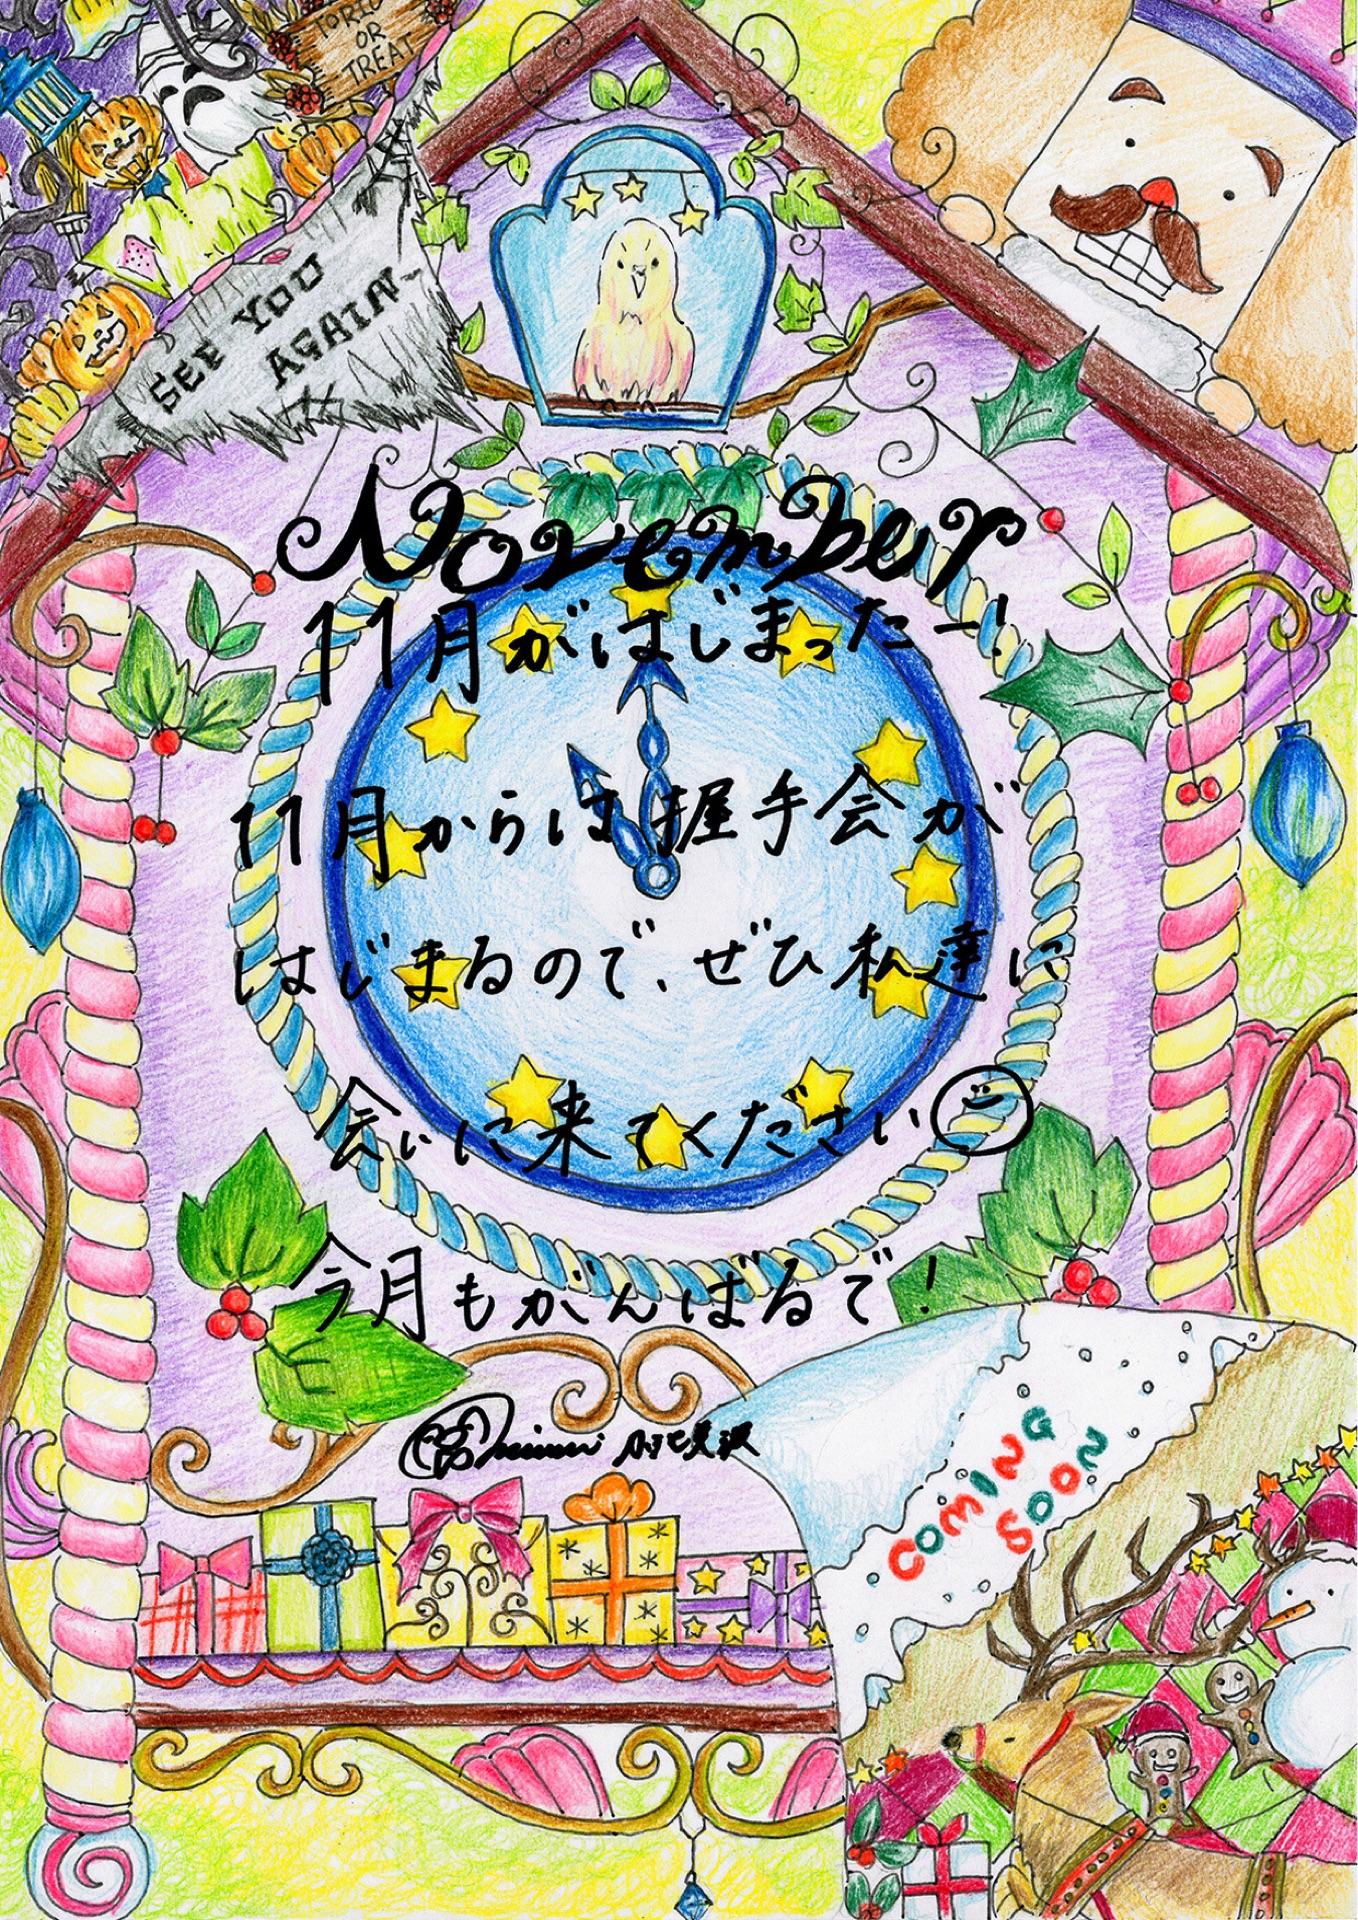 TORIC
OR
TREAT
SEE YOU
AGAIN~
November
11月がはじまったー!
11月からは握手会が
はじまるので、ぜひ私達に
会いに来てください
今月もがんばるで!
COMING
SOON